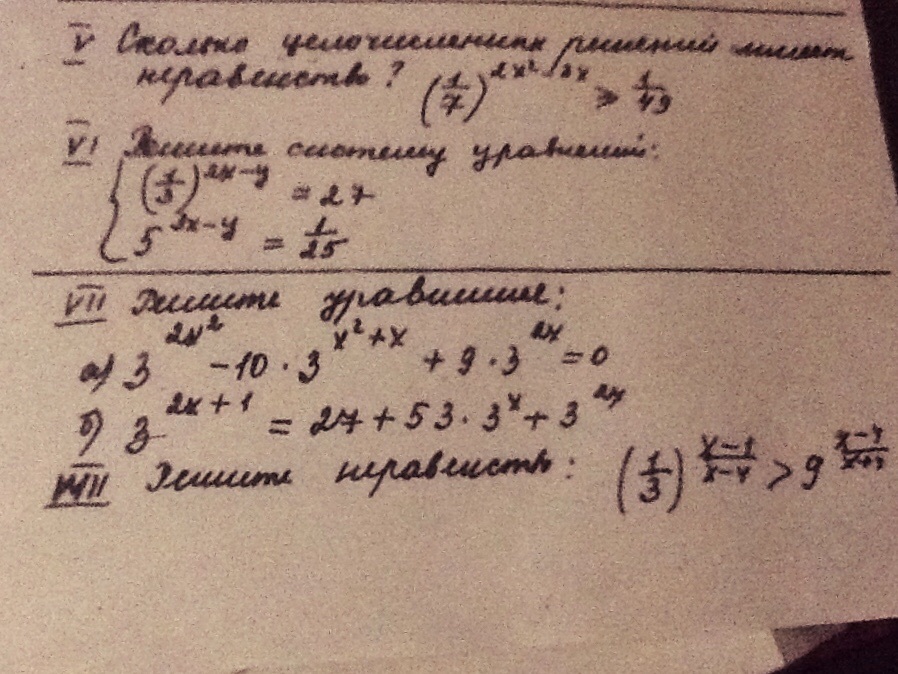 V Сколько целочисленных решений имеет
неравенство? (1/7)^(2x²-3x) ≥ 1/49
VI Решите систему уравнений:
{ (1/3)^(2x-y) = 27
5^(3x-y) = 1/25
VII Решите уравнение:
а) 3^(2x²) - 10 · 3^(x²+x) + 9 · 3^(2x) = 0
б) 3^(2x+1) = 27 + 53 · 3^x + 3^(2x)
VIII Решите неравенств: (1/3)^((x-1)/(x-4)) > 9